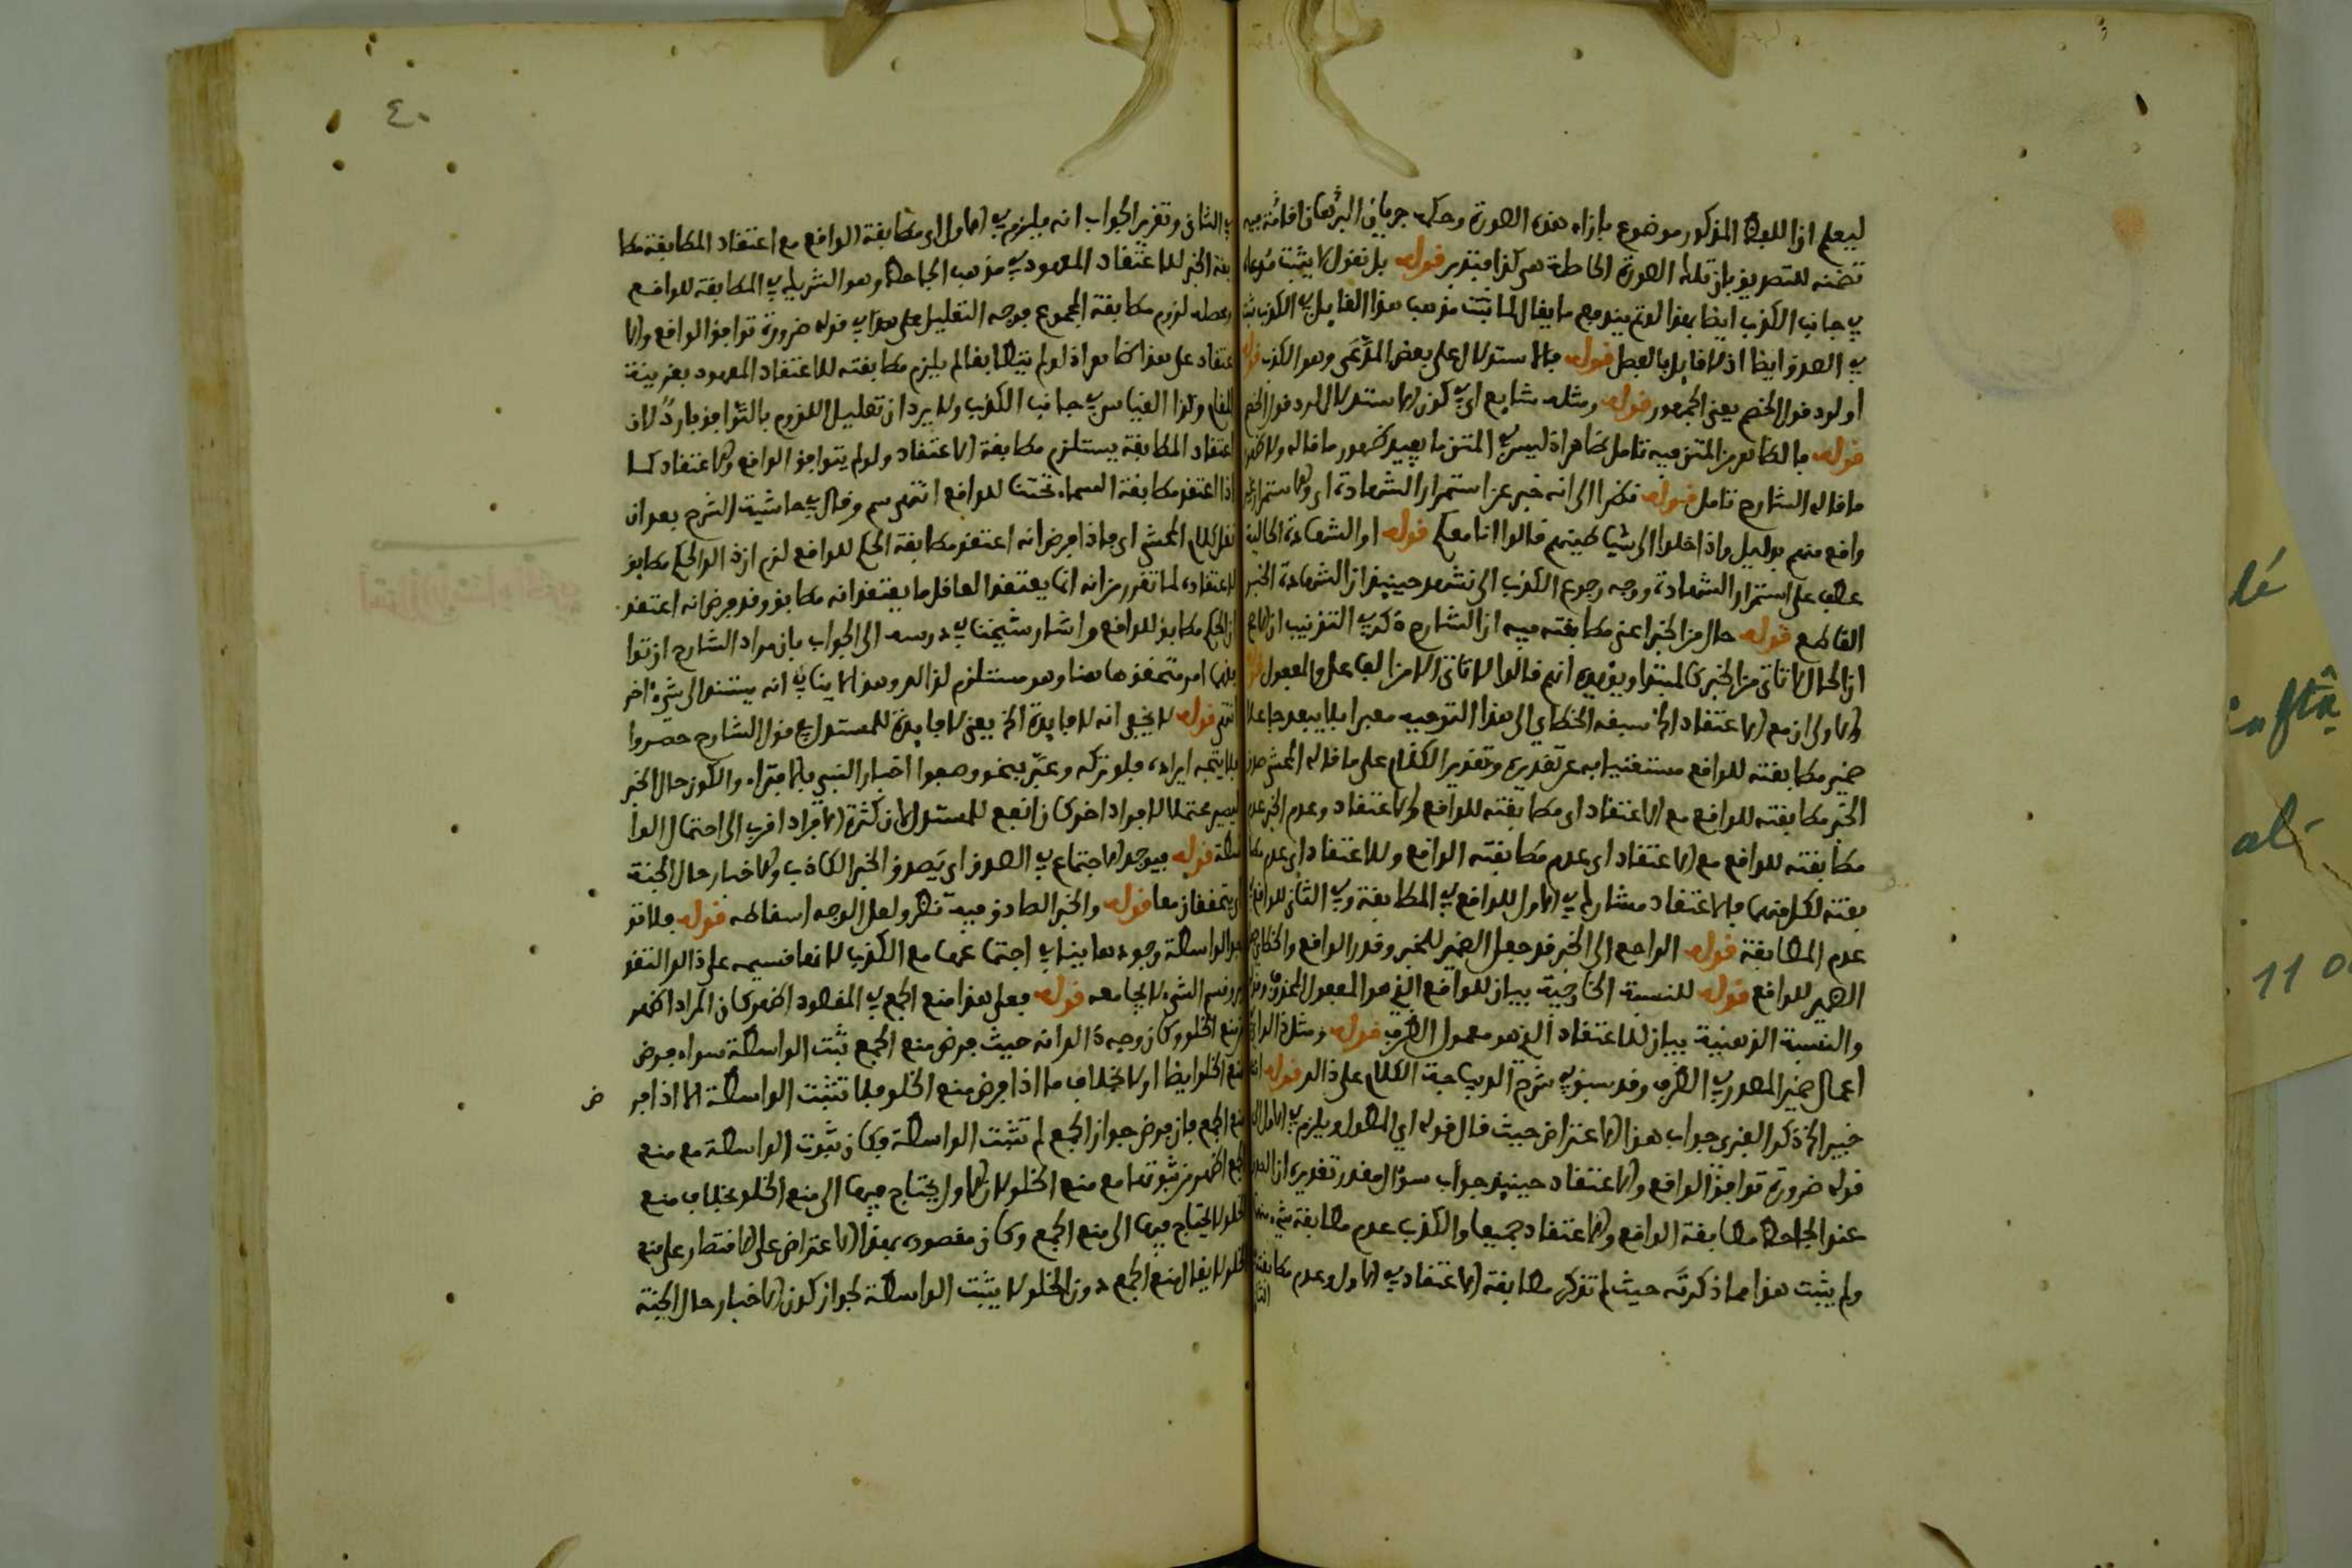 ليعلم ان اللفظ المذكور موضوع بازاء هذه الصورة وحكمه جريان البرهان اقامة فيه
تضمنه للتصريف بان تلك الصورة الحاصلة هي كذا فتدبر قوله بل نقول لا يثبت مدعاه
في جانب الكذب ايضا بهذا لوتم يندفع ما يقال لما ثبت مذهب هذا القايل في الكذب ثبت
في الصدق ايضا اذ لا قايل بالفصل قوله فالاستدلال على بعض المدعى وهو الكذب قوله
اولرد قول الخصم يعني الجمهور قوله ومثله شايع اي في كون الاستدلال لرد قول الخصم
قوله فالظاهر من المتن فيه تامل ظاهر اذ ليس في المتن ما يفيد ظهور ما قاله ولا ظهر
ما قاله الشارح تامل قوله نظرا الى انه خبر عن استمرار الشهادة اي والاستمرار غير
واقع منهم بدليل واذا خلوا الى شياطينهم قالوا انا معكم قوله او الشهادة الحالية
عطف على استمرار الشهادة ووجه رجوع الكذب الى نشهد حينيذ ان الشهادة الخبر
القاطع قوله حال من الخبر اعني مطابقته فيه ان الشارح ذكر في التغريب ان الاصح
ان الحال لا تاتى من الخبر كالمبتدا ويؤيده انهم قالوا لا تاتى الا من الفاعل والمفعول قوله
والاولى ان مع الاعتقاد الخ سبقه الخطاي الى هذا التوجيه معبرا بلا يبعد جاعلا
ضمير مطابقته للواقع مستغنيا به عن تقديره وتقدير الكلام على ما قاله المحشي صدق
الخبر مطابقته للواقع مع الاعتقاد اي مطابقته للواقع والاعتقاد وعدم الخبر عدم
مطابقته للواقع مع الاعتقاد اي عدم مطابقته الواقع وللاعتقاد اي عدم مطا
بقته لكل منهما فالاعتقاد مشارك في الاول للواقع في المطابقة وفي الثاني للواقع في
عدم المطابقة قوله الراجع الى الخبر قد جعل الضمير للخبر وقدر الواقع والخطاي جعل
الضمير للواقع قوله للنسبة الخارجية بيان للواقع الذي هو المفعول المحذوف وقوله
والنسبة الذهنية بيان للاعتقاد الذي هو معمول الظرف قوله ومثل ذالك في
اعمال ضمير المصدر في الظرف وقد سبق في شرح الديباجة الكلام على ذالك قوله انه
خبير الخ ذكر الفنرى جواب هذا الاعتراض حيث قال قوله اي المطول ويلزم في الاول الخ
قوله ضرورة توافق الواقع والاعتقاد حينيذ جواب سؤال مقدر تقديره ان الصدق
عند الجاحظ مطابقة الواقع والاعتقاد جميعا والكذب عدم مطابقة شيء منهما
ولم يثبت هذا مما ذكرته حيث لم تذكر مطابقة الاعتقاد في الاول وعدم مطابقته
٤٠
في الثاني وتقرير الجواب انه يلزم في الاول اي مطابقة الواقع مع اعتقاد المطابقة مطا
بقة الخبر للاعتقاد المعهود في مذهب الجاحظ وهو الشريك في المطابقة للواقع
وحصل لزوم مطابقة المجموع فوجه التعليل على هذا في قوله ضرورة توافق الواقع والا
عتقاد على هذا ظاهر اذ لو لم يتطابقا لم يلزم مطابقته للاعتقاد المعهود بقرينة
المقام وكذا القياس في جانب الكذب ولا يرد ان تعليل اللزوم بالتوافق بارد لان
اعتقاد المطابقة يستلزم مطابقة الاعتقاد ولو لم يتوافق الواقع والاعتقاد كما
اذا اعتقد مطابقة السماء تحتنا للواقع انتهى سم وقال في حاشية الشرح بعد ان
نقل كلام المحشي اي فاذا فرض انه اعتقد مطابقة الحكم للواقع لزم ان ذالك الحكم مطابق
لاعتقاده لما تقرر من انه انما يعتقد العاقل ما يعتقد انه مطابق وقد فرض انه اعتقد
ان الحكم مطابق للواقع واشار شيخنا في درسه الى الجواب بان مراد الشارح ان توا
فقهما امر متحقق هاهنا وهو مستلزم لذالك وهذا لا ينافي انه يستند الى شيء اخر
انتهى قوله لا يخفى انه لا فايدة الخ يعني لا فايدة للمستدل في قول الشارح حصروا
فلا يتجه ايراده فلو تركه وعبر بنحو وصفوا اخبار النبي بالافتراء والكون حال الخبر
ليصير محتملا لافراد اخر كان انفع للمستدل لان كثرة الافراد اقرب الى احتمال الوا
سطة قوله فيوجد الاجتماع في الصدق اي يصدق الخبر الكاذب والاخبار حال الجنة
اي يتحققان معا قوله والخبر الصادق فيه نظر ولعل الوجه اسقاطه قوله فلا تو
جد الواسطة وجودها ينافي اجتماعهما مع الكذب لانها قسيمه على ذالك التقد
ير وقسيم الشيء لا يجامعه قوله فعلى هذا منع الجمع في المقصود اظهر كان المراد اظهر
من منع الخلو وكان وجه ذالك انه حيث فرض منع الجمع ثبت الواسطة سواء فرض
منع الخلو ايضا او لا بخلاف ما اذا فرض منع الخلو فلا تثبت الواسطة الا اذا فر
ض
منع الجمع فان فرض جواز الجمع لم تثبت الواسطة فكان ثبوت الواسطة مع منع
الجمع اظهر من ثبوتها مع منع الخلو لان الاول يحتاج فيهما الى منع الخلو بخلاف منع
الخلو لا يحتاج فيهما الى منع الجمع وكان مقصوده بهذا الاعتراض على الاقتصار على منع
الخلو لا يقال منع الجمع دون الخلو لا يثبت الواسطة لجواز كون الاخبار حال الجنة
lé
inftā
al-
11